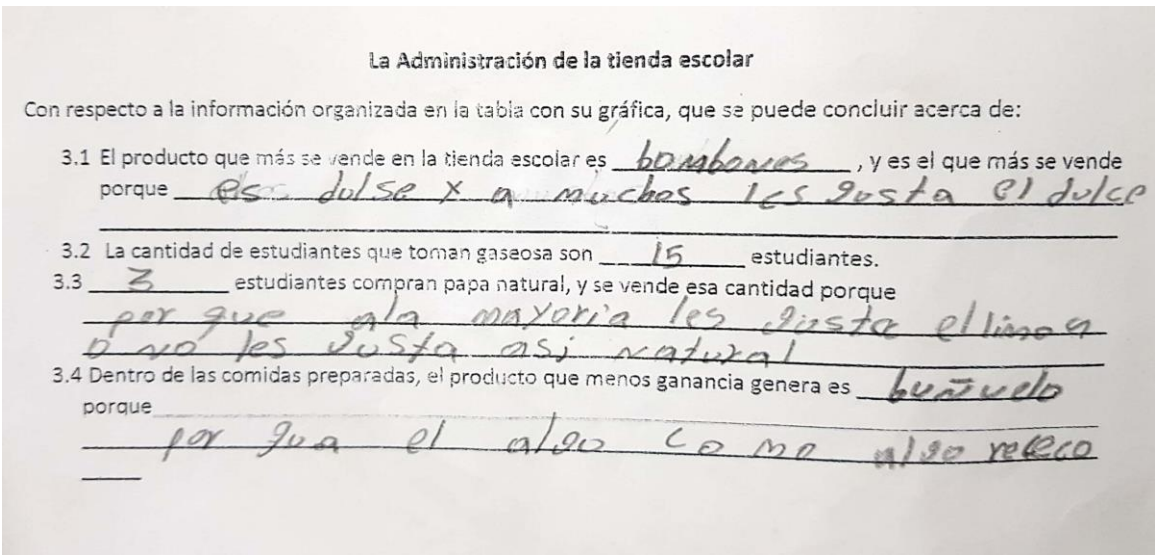 La Administración de la tienda escolar
Con respecto a la información organizada en la tabla con su gráfica, que se puede concluir acerca de:
3.1 El producto que más se vende en la tienda escolar es bombones, y es el que más se vende
porque es dulse x a muchos les gusta el dulce
3.2 La cantidad de estudiantes que toman gaseosa son 15 estudiantes.
3.3 3 estudiantes compran papa natural, y se vende esa cantidad porque
por que ala mayoria les gusta el
o no les gusta asi natural
3.4 Dentro de las comidas preparadas, el producto que menos ganancia genera es buñuelo
porque
por que el algo como algo